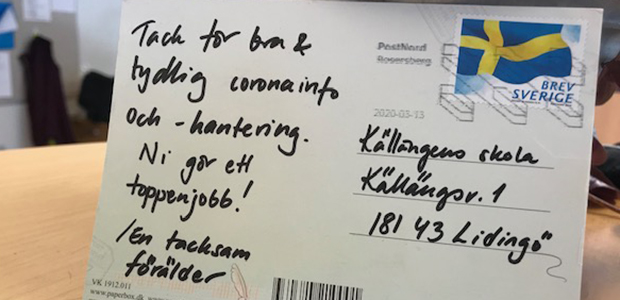 Tack för bra &
tydlig coronainfo
och -hantering.
Ni gör ett
toppenjobb!
/En tacksam
förälder
VK 1912.011
www.paperbox.dk
PostNord
Rosersberg
2020-03-13
BREV
SVERIGE
Källängens skola
Källängsv. 1
181 43 Lidingö